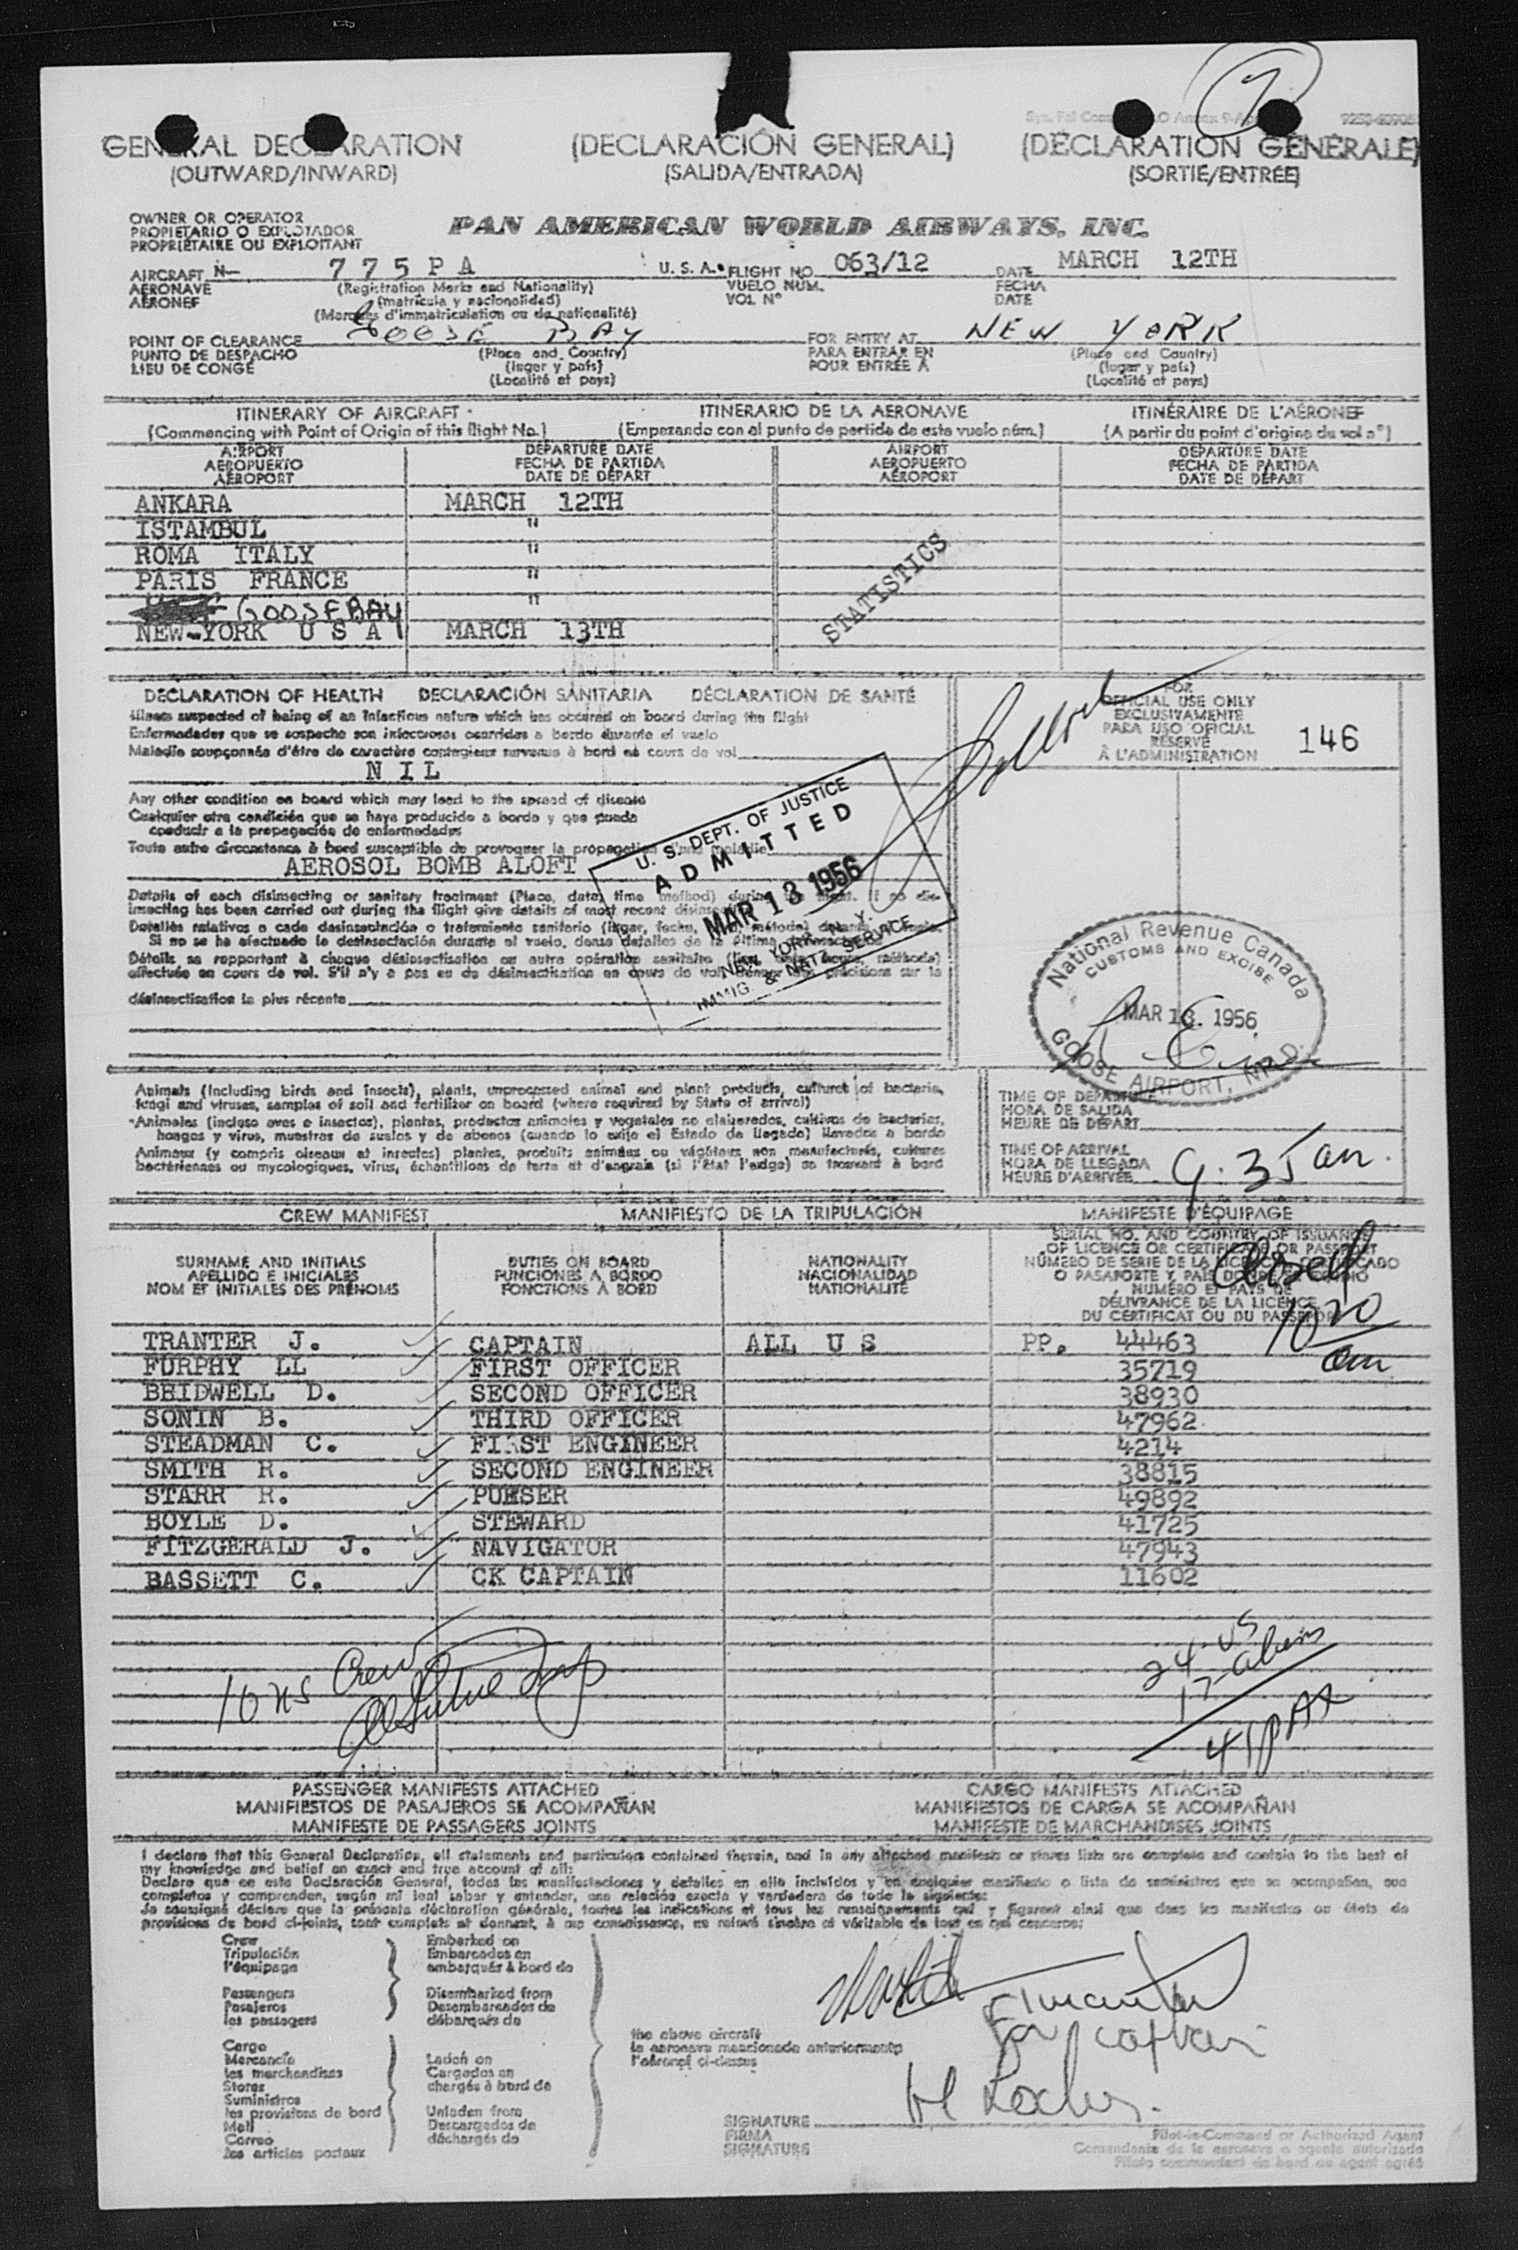 GENERAL DECLARATION (DECLARACIÓN GENERAL) (DÉCLARATION GÉNÉRALE)
(OUTWARD/INWARD) (SALIDA/ENTRADA) (SORTIE/ENTRÉE)
OWNER OR OPERATOR
PROPIETARIO O EXPLOTADOR
PROPRIÉTAIRE OU EXPLOITANT
PAN AMERICAN WORLD AIRWAYS, INC.
AIRCRAFT N- 775PA U. S. A. FLIGHT NO. 063/12 DATE MARCH 12TH
AÉRONAVE (Registration Marks and Nationality) VUELO NÚM. FECHA
AÉRONEF (matrícula y nacionalidad) VOL Nº DATE
(Marques d'immatriculation ou de nationalité)
POINT OF CLEARANCE GOOSE BAY FOR ENTRY AT NEW YORK
PUNTO DE DESPACHO (Place and Country) PARA ENTRAR EN (Place and Country)
LIEU DE CONGÉ (lugar y país) POUR ENTRÉE À (lugar y país)
(Localité et pays) (Localité et pays)
ITINERARY OF AIRCRAFT ITINERARIO DE LA AERONAVE ITINÉRAIRE DE L'AÉRONEF
(Commencing with Point of Origin of this flight No.) (Empezando con el punto de partida de este vuelo núm.) (A partir du point d'origine du vol nº)
AIRPORT DEPARTURE DATE AIRPORT DEPARTURE DATE
AEROPUERTO FECHA DE PARTIDA AEROPUERTO FECHA DE PARTIDA
AÉROPORT DATE DE DÉPART AÉROPORT DATE DE DÉPART
ANKARA MARCH 12TH
ISTAMBUL "
ROMA ITALY "
PARIS FRANCE "
GOOSE BAY "
NEW-YORK U S A MARCH 13TH
STATISTICS
DECLARATION OF HEALTH DECLARACIÓN SANITARIA DÉCLARATION DE SANTÉ
Illness suspected of being of an infectious nature which has occurred on board during the flight
Enfermedades que se sospecha son infecciosas ocurridas a bordo durante el vuelo
Maladie soupçonnée d'être de caractère contagieux survenue à bord en cours de vol
NIL
FOR
OFFICIAL USE ONLY
EXCLUSIVAMENTE
PARA USO OFICIAL
RÉSERVÉ
À L'ADMINISTRATION
146
Any other condition on board which may lead to the spread of disease
Cualquier otra condición que se haya producido a bordo y que pueda
conducir a la propagación de enfermedades
Toute autre circonstance à bord susceptible de provoquer la propagation d'une maladie
AEROSOL BOMB ALOFT
U. S. DEPT. OF JUSTICE
ADMITTED
MAR 13 1956
NEW YORK, N. Y.
IMMIG. & NAT. SERVICE
Details of each disinsecting or sanitary treatment (Place, date, time method) during the flight. If no disinsecting
has been carried out during the flight give details of most recent disinsecting
désinsectisation la plus récente
National Revenue Canada
CUSTOMS AND EXCISE
MAR 13 1956
GOOSE AIRPORT, NFLD.
Animals (including birds and insects), plants, unprocessed animal and plant products, cultures of bacteria,
fungi and viruses, samples of soil and fertilizer on board (where required by State of arrival)
Animales (incluso aves e insectos), plantas, productos animales y vegetales no elaborados, cultivos de bacterias,
hongos y virus, muestras de suelos y de abonos (cuando lo exija el Estado de llegada) llevados a bordo
Animaux (y compris oiseaux et insectes) plantes, produits animaux ou végétaux non manufacturés, cultures
bactériennes ou mycologiques, virus, échantillons de terre et d'engrais (si l'État l'exige) se trouvant à bord
TIME OF DEPARTURE
HORA DE SALIDA
HEURE DE DÉPART
TIME OF ARRIVAL
HORA DE LLEGADA
HEURE D'ARRIVÉE
9:35 am.
CREW MANIFEST MANIFIESTO DE LA TRIPULACIÓN MANIFESTE D'ÉQUIPAGE
SURNAME AND INITIALS DUTIES ON BOARD NATIONALITY
APELLIDO E INICIALES FUNCIONES A BORDO NACIONALIDAD
NOM ET INITIALES DES PRÉNOMS FONCTIONS À BORD NATIONALITÉ
SERIAL NO. AND COUNTRY OF ISSUANCE
OF LICENCE OR CERTIFICATE OR PASSPORT
NÚMERO DE SERIE DE LA LICENCIA CERTIFICADO
NUMÉRO ET PAYS DE
DÉLIVRANCE DE LA LICENCE
DU CERTIFICAT OU DU PASSEPORT
1020
am
TRANTER J. CAPTAIN ALL U S PP. 44463
FURPHY LL FIRST OFFICER 35719
BRIDWELL D. SECOND OFFICER 38930
SONIN B. THIRD OFFICER 47962
STEADMAN C. FIRST ENGINEER 4214
SMITH R. SECOND ENGINEER 38815
STARR R. PURSER 49892
BOYLE D. STEWARD 41725
FITZGERALD J. NAVIGATOR 47943
BASSETT C. CK CAPTAIN 11602
10 US Crew
24 US
17 aliens
41 PAX
PASSENGER MANIFESTS ATTACHED CARGO MANIFESTS ATTACHED
MANIFIESTOS DE PASAJEROS SE ACOMPAÑAN MANIFIESTOS DE CARGA SE ACOMPAÑAN
MANIFESTE DE PASSAGERS JOINTS MANIFESTE DE MARCHANDISES JOINTS
I declare that this General Declaration, all statements and particulars contained therein, and in any attached manifests or stores lists are complete and contain to the best of
my knowledge and belief an exact and true account of all:
Declaro que en esta Declaración General, todas las manifestaciones y detalles en ella incluídos y en cualquier manifiesto o lista de suministros que se acompañan, son
completos y comprenden, según mi leal saber y entender, una relación exacta y verdadera de todo lo siguiente:
Je soussigné déclare que la présente déclaration générale, toutes les indications et tous les renseignements qui y figurent ainsi que dans les manifestes ou états de
provisions de bord ci-joints, sont complets et donnent, à ma connaissance, un relevé sincère et véritable de tout ce qui concerne:
Crew Embarked on
Tripulación Embarcados en
l'équipage embarqués à bord de
Passengers Disembarked from
Pasajeros Desembarcados de
les passagers débarqués de
the above aircraft
la aeronave mencionada anteriormente
l'aéronef ci-dessus
Cargo
Mercancía Laden on
les marchandises Cargados en
Stores chargés à bord de
Suministros
les provisions de bord Unladen from
Mail Descargados de
Correo déchargés de
les articles postaux
for captain
SIGNATURE
FIRMA
SIGNATURE
Pilot-in-Command or Authorized Agent
Comandante de la aeronave o agente autorizado
Pilote commandant de bord ou agent agréé